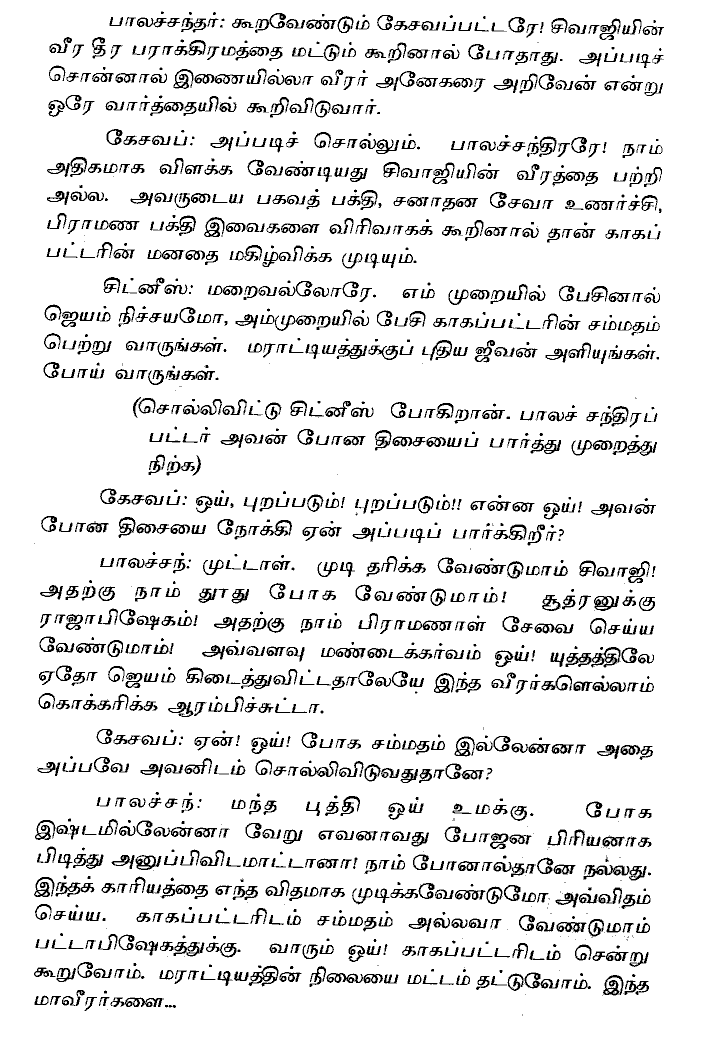 பாலச்சந்தர்: கூறவேண்டும் கேசவப்பட்டரே! சிவாஜியின்
வீர தீர பராக்கிரமத்தை மட்டும் கூறினால் போதாது. அப்படிச்
சொன்னால் இணையில்லா வீரர் அனேகரை அறிவேன் என்று
ஒரே வார்த்தையில் கூறிவிடுவார்.
கேசவப்: அப்படிச் சொல்லும். பாலச்சந்திரரே! நாம்
அதிகமாக விளக்க வேண்டியது சிவாஜியின் வீரத்தை பற்றி
அல்ல. அவருடைய பகவத் பக்தி, சனாதன சேவா உணர்ச்சி,
பிராமண பக்தி இவைகளை விரிவாகக் கூறினால் தான் காகப்
பட்டரின் மனதை மகிழ்விக்க முடியும்.
சிட்னீஸ்: மறைவல்லோரே. எம் முறையில் பேசினால்
ஜெயம் நிச்சயமோ, அம்முறையில் பேசி காகப்பட்டரின் சம்மதம்
பெற்று வாருங்கள். மராட்டியத்துக்குப் புதிய ஜீவன் அளியுங்கள்.
போய் வாருங்கள்.
(சொல்லிவிட்டு சிட்னீஸ் போகிறான். பாலச் சந்திரப்
பட்டர் அவன் போன திசையைப் பார்த்து முறைத்து
நிற்க)
கேசவப்: ஒய், புறப்படும்! புறப்படும்!! என்ன ஒய்! அவன்
போன திசையை நோக்கி ஏன் அப்படிப் பார்க்கிறீர்?
பாலச்சந்: முட்டாள். முடி தரிக்க வேண்டுமாம் சிவாஜி!
அதற்கு நாம் தூது போக வேண்டுமாம்! சூத்ரனுக்கு
ராஜாபிஷேகம்! அதற்கு நாம் பிராமணாள் சேவை செய்ய
வேண்டுமாம்! அவ்வளவு மண்டைக்கர்வம் ஒய்! யுத்தத்திலே
ஏதோ ஜெயம் கிடைத்துவிட்டதாலேயே இந்த வீரர்களெல்லாம்
கொக்கரிக்க ஆரம்பிச்சுட்டா.
கேசவப்: ஏன்! ஒய்! போக சம்மதம் இல்லேன்னா அதை
அப்பவே அவனிடம் சொல்லிவிடுவதுதானே?
பாலச்சந்: மந்த புத்தி ஒய் உமக்கு. போக
இஷ்டமில்லேன்னா வேறு எவனாவது போஜன பிரியனாக
பிடித்து அனுப்பிவிடமாட்டானா! நாம் போனால்தானே நல்லது.
இந்தக் காரியத்தை எந்த விதமாக முடிக்கவேண்டுமோ அவ்விதம்
செய்ய. காகப்பட்டரிடம் சம்மதம் அல்லவா வேண்டுமாம்
பட்டாபிஷேகத்துக்கு. வாரும் ஒய்! காகப்பட்டரிடம் சென்று
கூறுவோம். மராட்டியத்தின் நிலையை மட்டம் தட்டுவோம். இந்த
மாவீரர்களை...